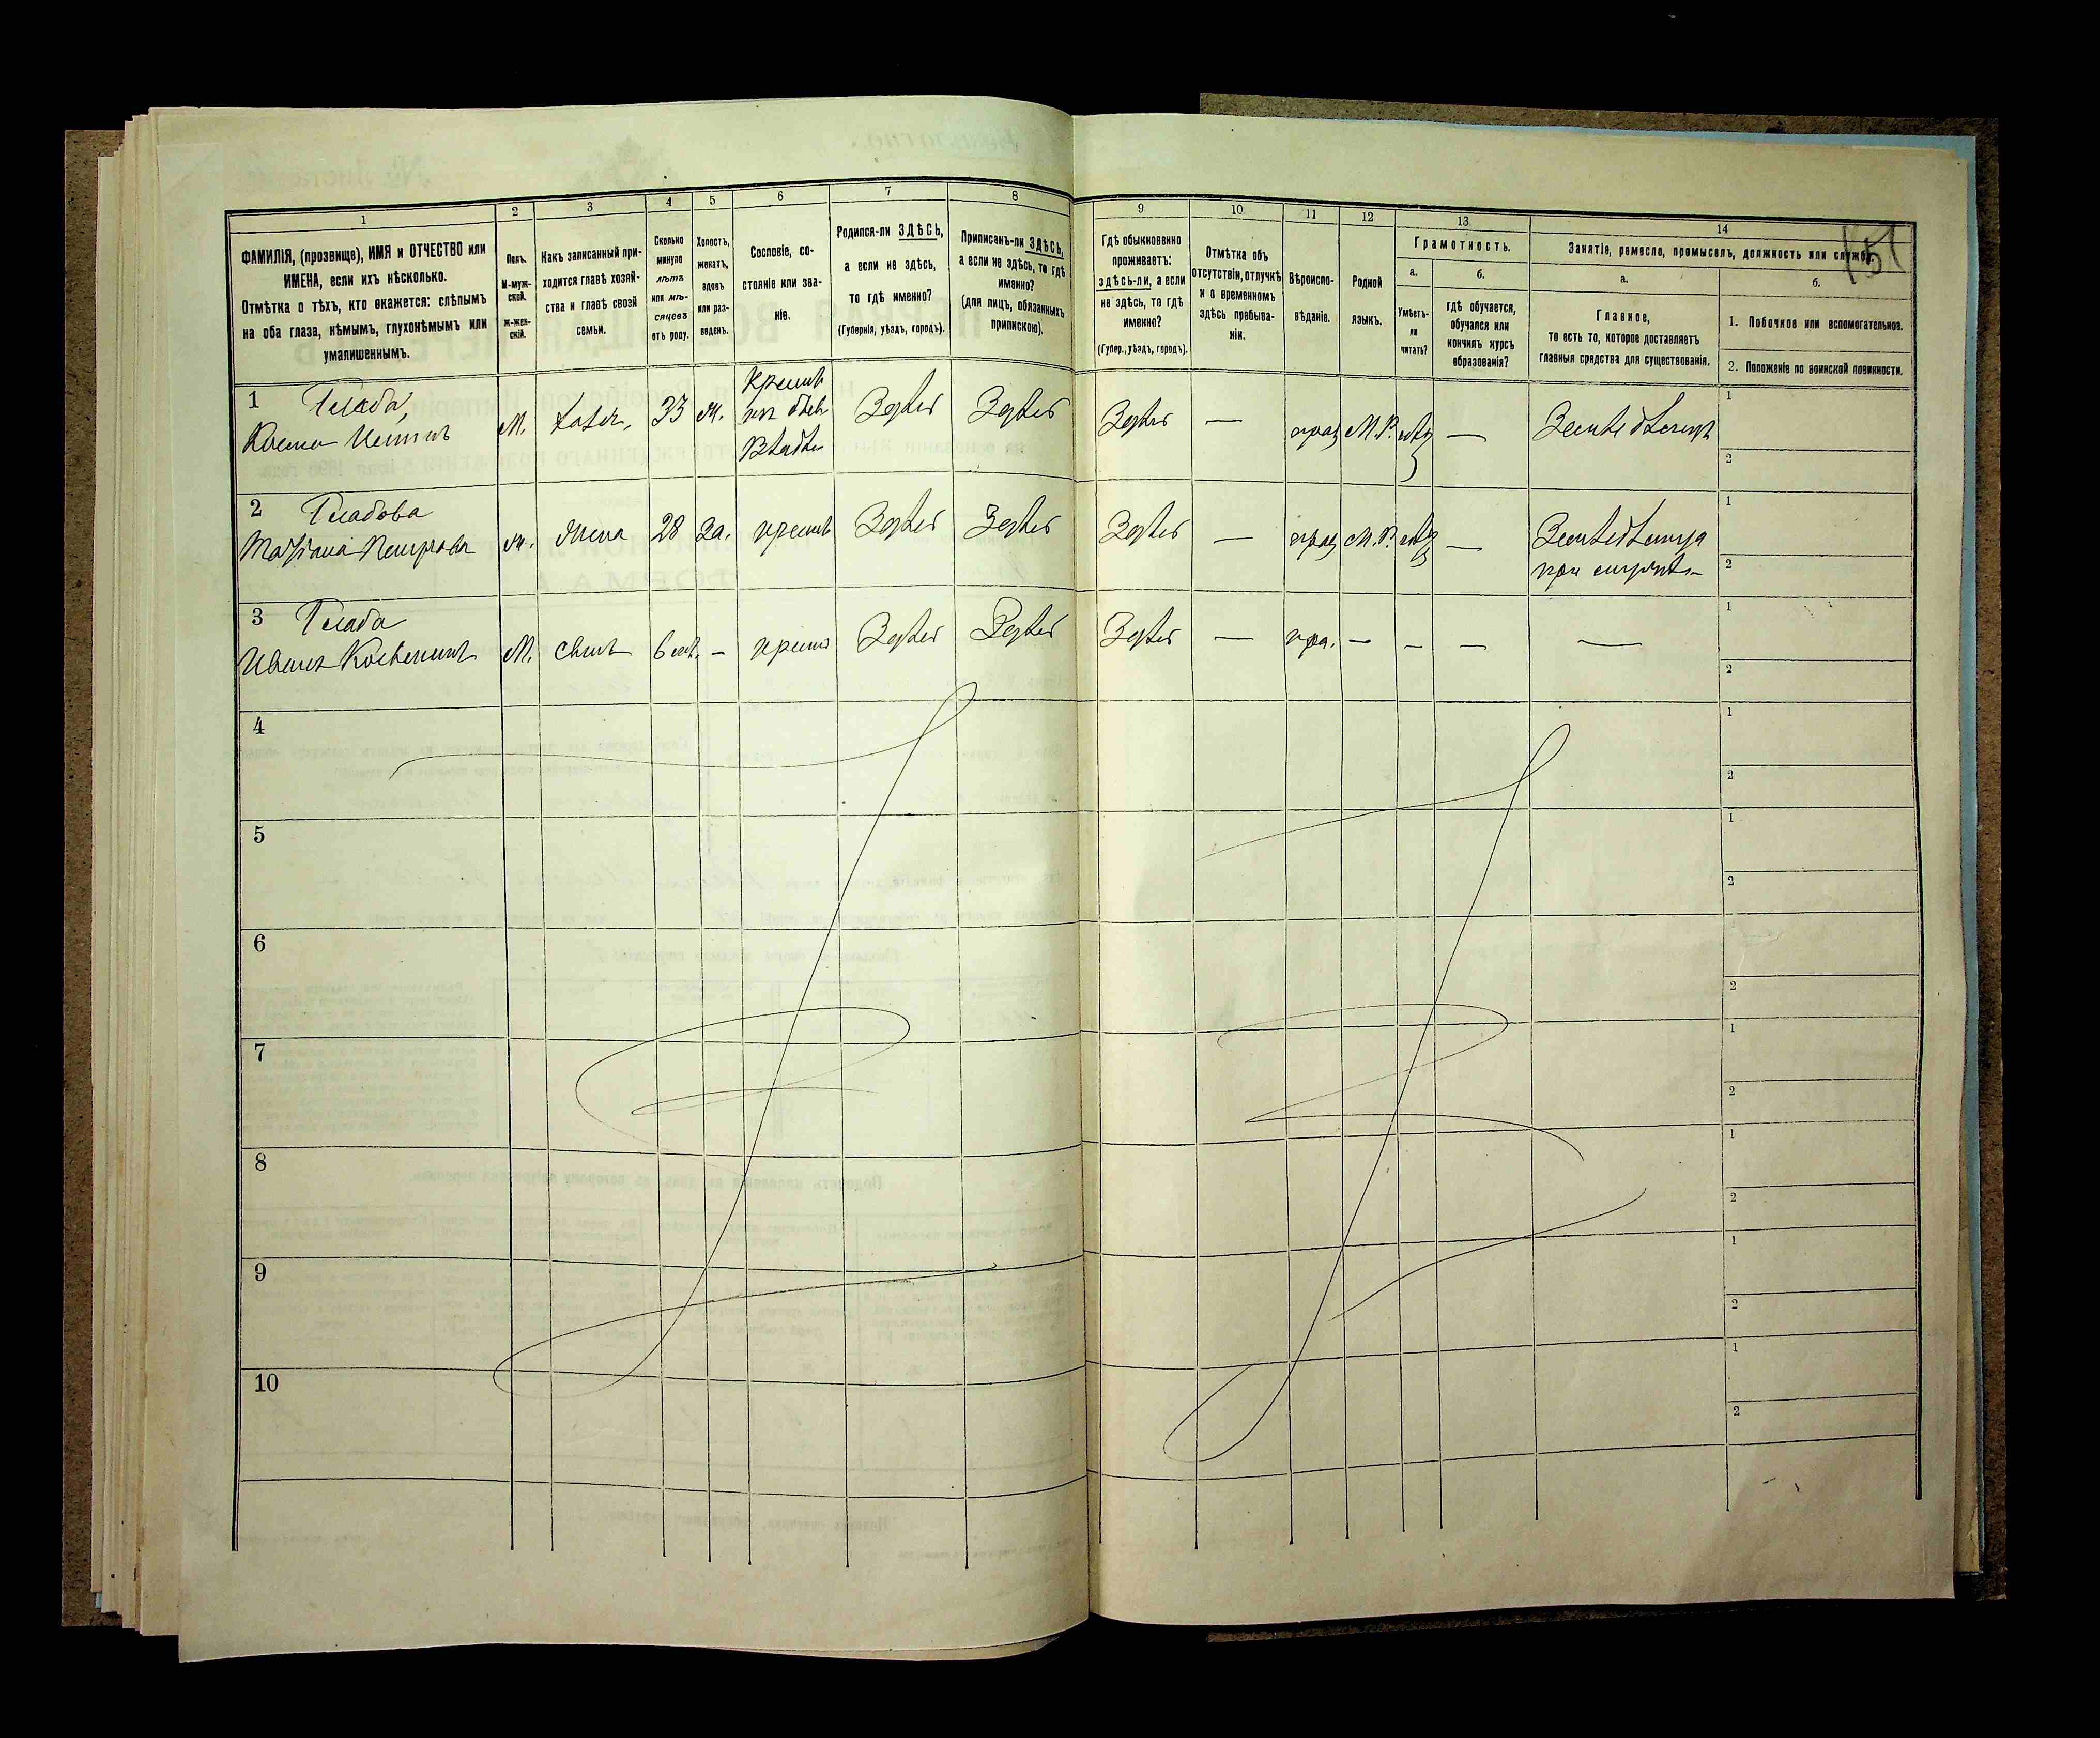 1
2
3
4
5
6
7
8
ФАМИЛІЯ, (прозвище), ИМЯ и ОТЧЕСТВО или
ИМЕНА, если ихъ нѣсколько.
Отмѣтка о тѣхъ, кто окажется: слѣпымъ
на оба глаза, нѣмымъ, глухонѣмымъ или
умалишеннымъ.
Полъ.
М-муж-
ской.
Ж-жен-
скій.
Какъ записанный при-
ходится главѣ хозяй-
ства и главѣ своей
семьи.
Сколько
минуло
лѣтъ
или мѣ-
сяцевъ
отъ роду.
Холостъ,
женатъ,
вдовъ
или раз-
веденъ.
Сословіе, со-
стояніе или зва-
ніе.
Родился-ли ЗДѢСЬ,
а если не здѣсь,
то гдѣ именно?
(Губернія, уѣздъ, городъ).
Приписанъ-ли ЗДѢСЬ,
а если не здѣсь, то гдѣ
именно?
(для лицъ, обязанныхъ
припискою).
9
10
11
12
13
14
151
Гдѣ обыкновенно
проживаетъ:
здѣсь-ли, а если
не здѣсь, то гдѣ
именно?
(Губер., уѣздъ, городъ).
Отмѣтка объ
отсутствіи, отлучкѣ
и о временномъ
здѣсь пребыва-
ніи.
Вѣроиспо-
вѣданіе.
Родной
языкъ.
Грамотность.
а.
Умѣетъ-
ли
читать?
б.
Гдѣ обучается,
обучался или
кончилъ курсъ
образованія?
Занятіе, ремесло, промыселъ, должность или служба.
а.
Главное,
то есть то, которое доставляетъ
главныя средства для существованія.
б.
1. Побочное или вспомогательное.
2. Положеніе по воинской повинности.
1
М.
33
Здѣсь
Здѣсь
Здѣсь
—
прав
М.Р.
—
Земледѣлецъ
1
2
2
жена
28
За.
крест
Здѣсь
Здѣсь
Здѣсь
—
прав
М.Р.
—
1
2
3
Иванъ
М.
сынъ
6
—
Здѣсь
Здѣсь
Здѣсь
—
пра.
—
—
—
—
1
2
4
1
2
5
1
2
6
2
7
1
2
8
1
2
9
1
2
10
1
2